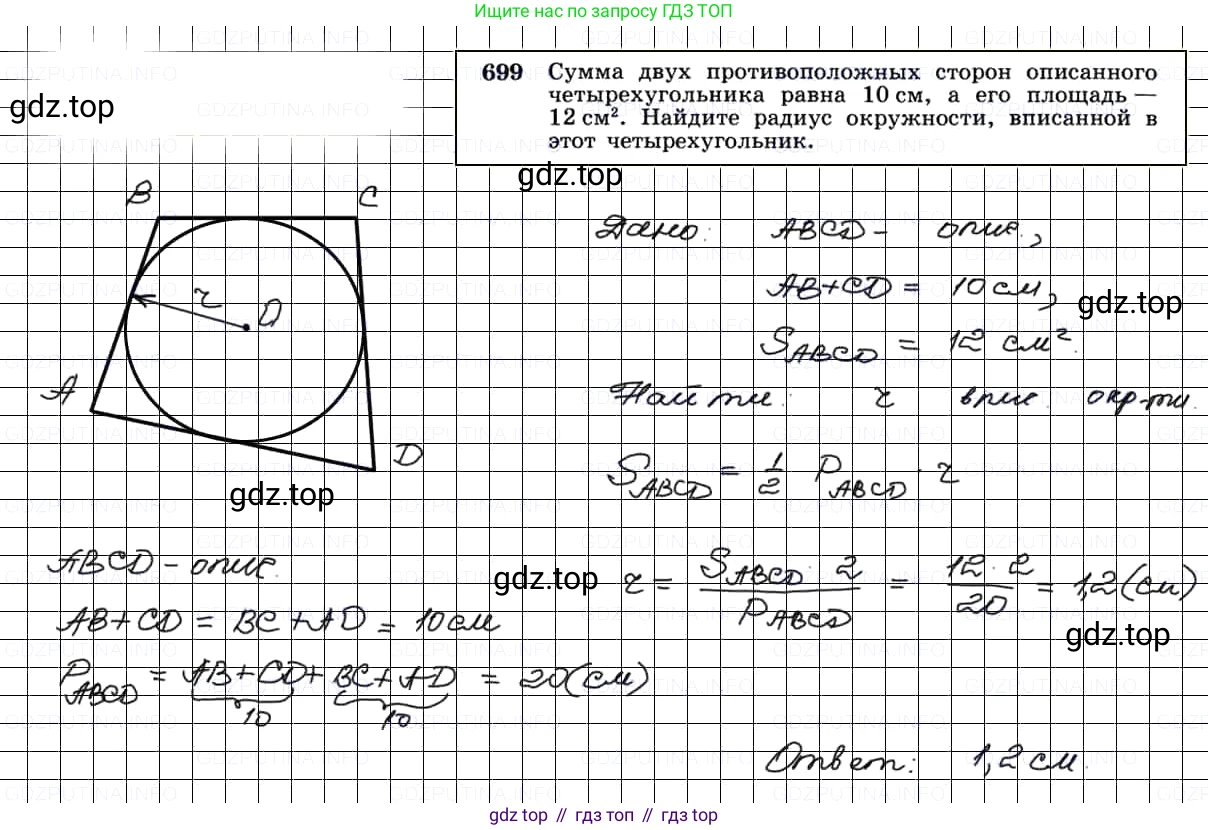 Ищите нас по запросу ГДЗ ТОП
699 Сумма двух противоположных сторон описанного
четырехугольника равна 10 см, а его площадь —
12 см². Найдите радиус окружности, вписанной в
этот четырехугольник.
gdz.top
gdz.top
B
C
r
O
A
D
gdz.top
Дано: ABCD - опис.,
AB+CD = 10 см,
gdz.top
S_ABCD = 12 см².
Найти: r впис. окр-ти.
S_ABCD = 1/2 P_ABCD · r
ABCD - опис.
AB+CD = BC+AD = 10 см
P_ABCD = AB+CD + BC+AD = 20 (см)
10 10
gdz.top
r = S_ABCD · 2 / P_ABCD = 12 · 2 / 20 = 1,2 (см)
gdz.top
Ответ: 1,2 см.
gdz top // гдз топ // gdz top
GDZPUTINA.INFO